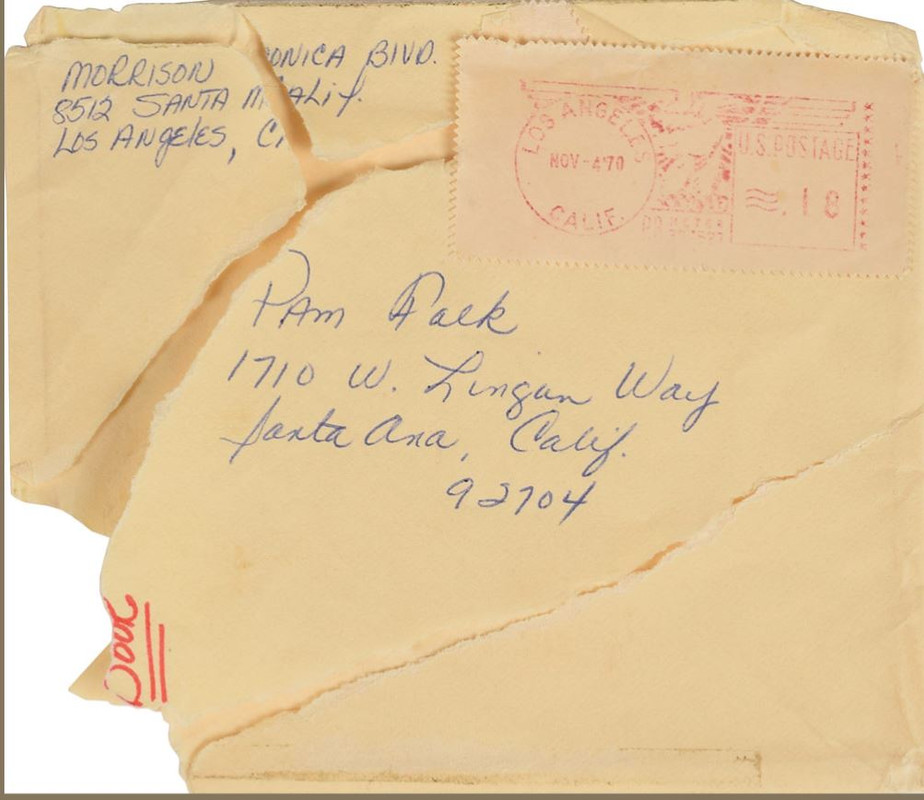 MORRISON
8512 SANTA MONICA BLVD.
LOS ANGELES, CALif.
LOS ANGELES
NOV-4'70
CALIF.
U.S. POSTAGE
.18
PAm Falk
1710 W. Lingan Way
Santa Ana, Calif.
92704